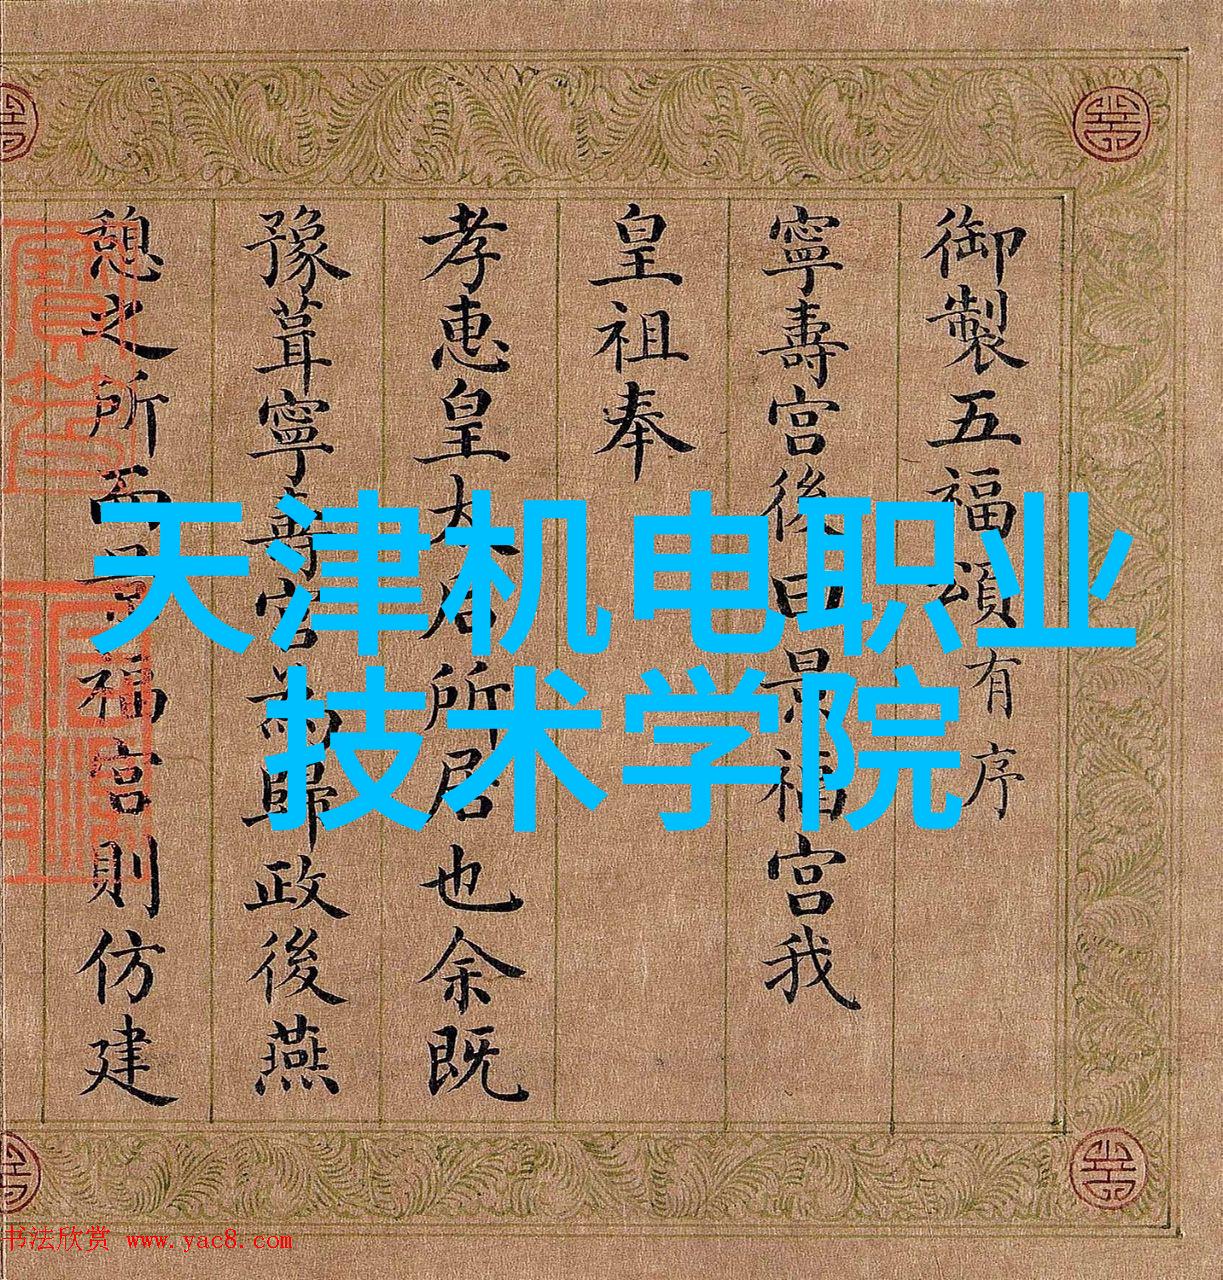 御製五福頌有序
寧壽宮後曰景福宮我
皇祖奉
孝惠皇太后所居也余既
豫葺寧壽宮為歸政後燕
憩之所而景福宮則仿建
天津机电职业
技术学院
书法欣赏 www.yac8.com